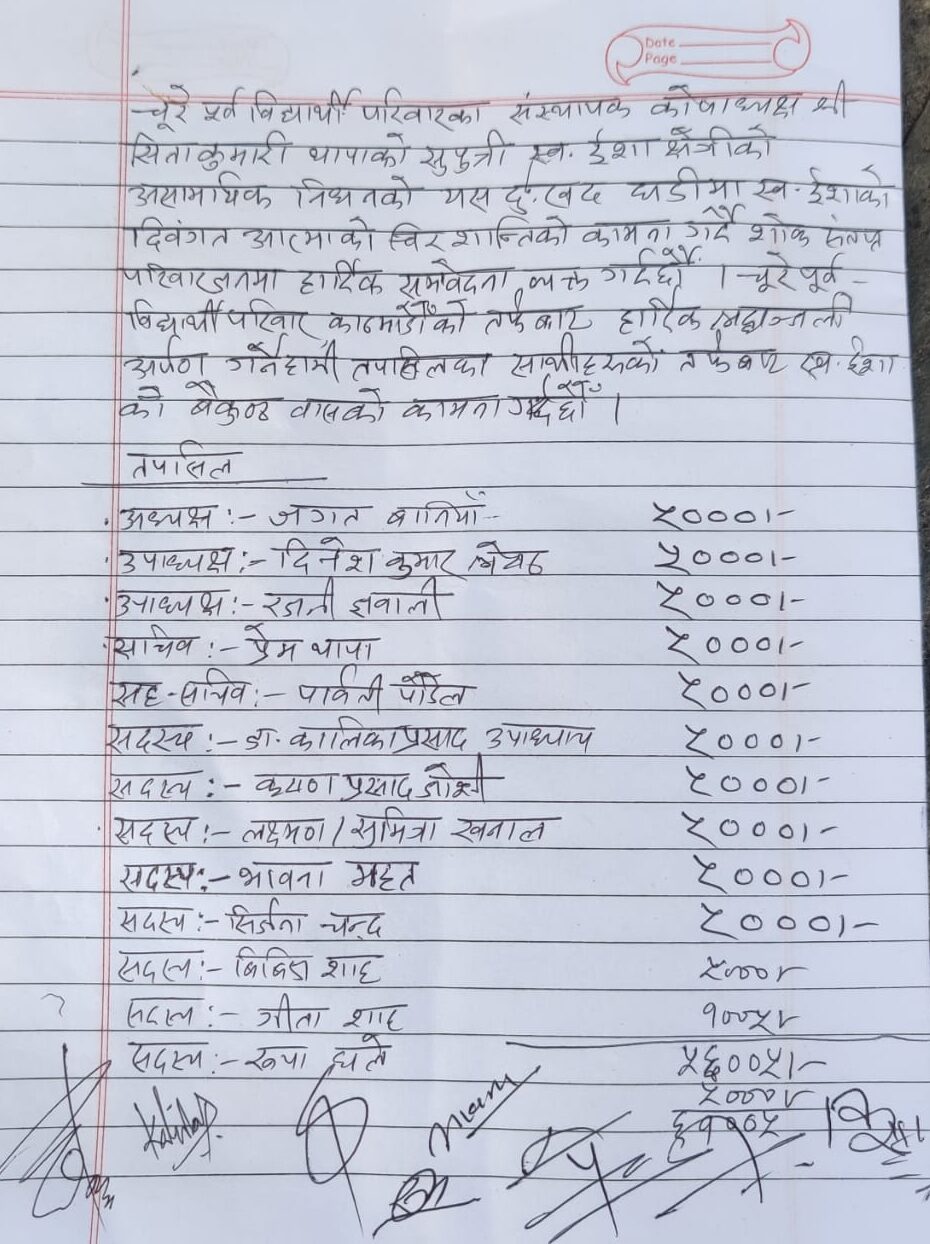 Date
Page
चूरे पूर्व विद्यार्थी परिवारका संस्थापक कोषाध्यक्ष श्री
सिता कुमारी थापाको सुपुत्री स्व. ईशा क्षेत्रीको
असामायिक निधनको यस दुःखद घडीमा स्व. ईशाको
दिवंगत आत्माको चिर शान्तिको कामना गर्दै शोक संतप्त
परिवारजनमा हार्दिक समवेदना व्यक्त गर्दछौं । चूरे पूर्व-
विद्यार्थी परिवार काठमाडौंको तर्फबाट हार्दिक श्रद्धाञ्जली
अर्पण गर्ने हामी तपासिलका साथीहरुको तर्फबाट स्व. ईशा
को बैकुण्ठ वासको कामना गर्दछौं ।
तपासिल
अध्यक्ष :- जगत बानियाँ ५०००।-
उपाध्यक्ष :- दिनेश कुमार श्रेष्ठ ५०००।-
उपाध्यक्ष :- रजनी ज्ञवाली ५०००।-
सचिव :- प्रेम थापा ५०००।-
सह-सचिव :- पार्वती पौडेल ५०००।-
सदस्य :- डा. कालिका प्रसाद उपाध्याय ५०००।-
सदस्य :- प्रसाद जोशी ५०००।-
सदस्य :- लक्ष्मण / सुमित्रा खनाल ५०००।-
सदस्य :- भावना महत ५०००।-
सदस्य :- सिर्जना चन्द ५०००।-
सदस्य :- शाह
सदस्य :- गीता शाह
सदस्य :- रूपा घले